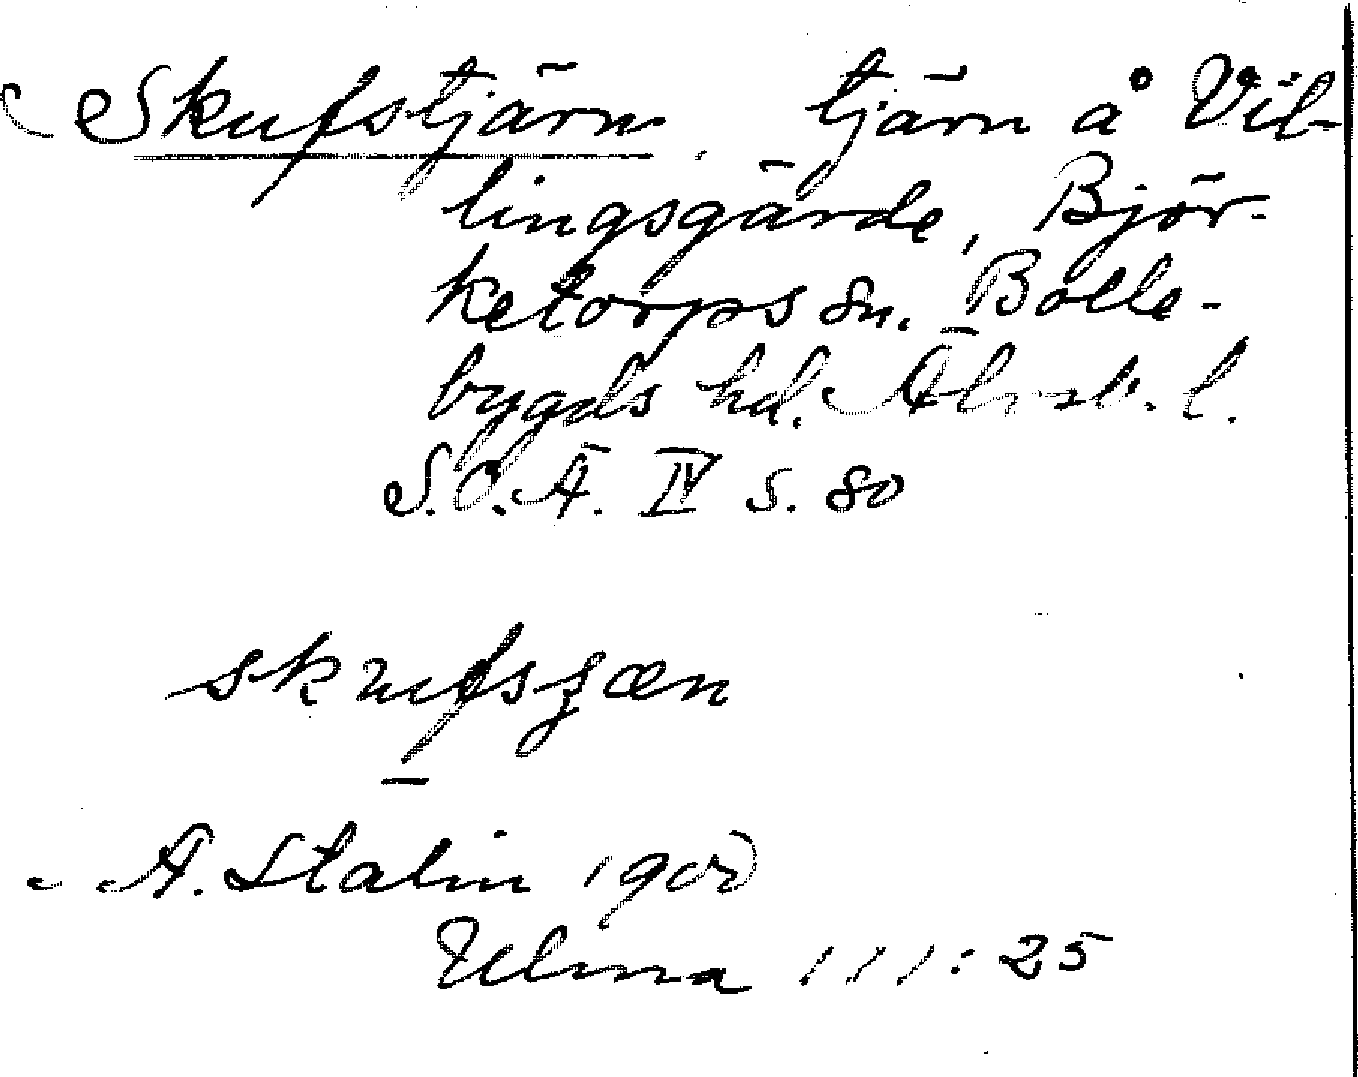 Skufstjärn. tjärn å Vib-
lingsgärde, Björ-
ketorps sn. Bolle-
bygds hd. Älvsb. l.
S.O.Ä. IV s. 80
skufsʒæn
A. Stalin 1905
Ulma 111:25